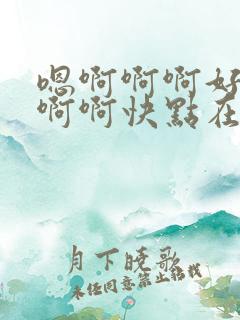 嗯啊啊啊好
啊啊快點在
月下晚歌
未经同意禁止转载